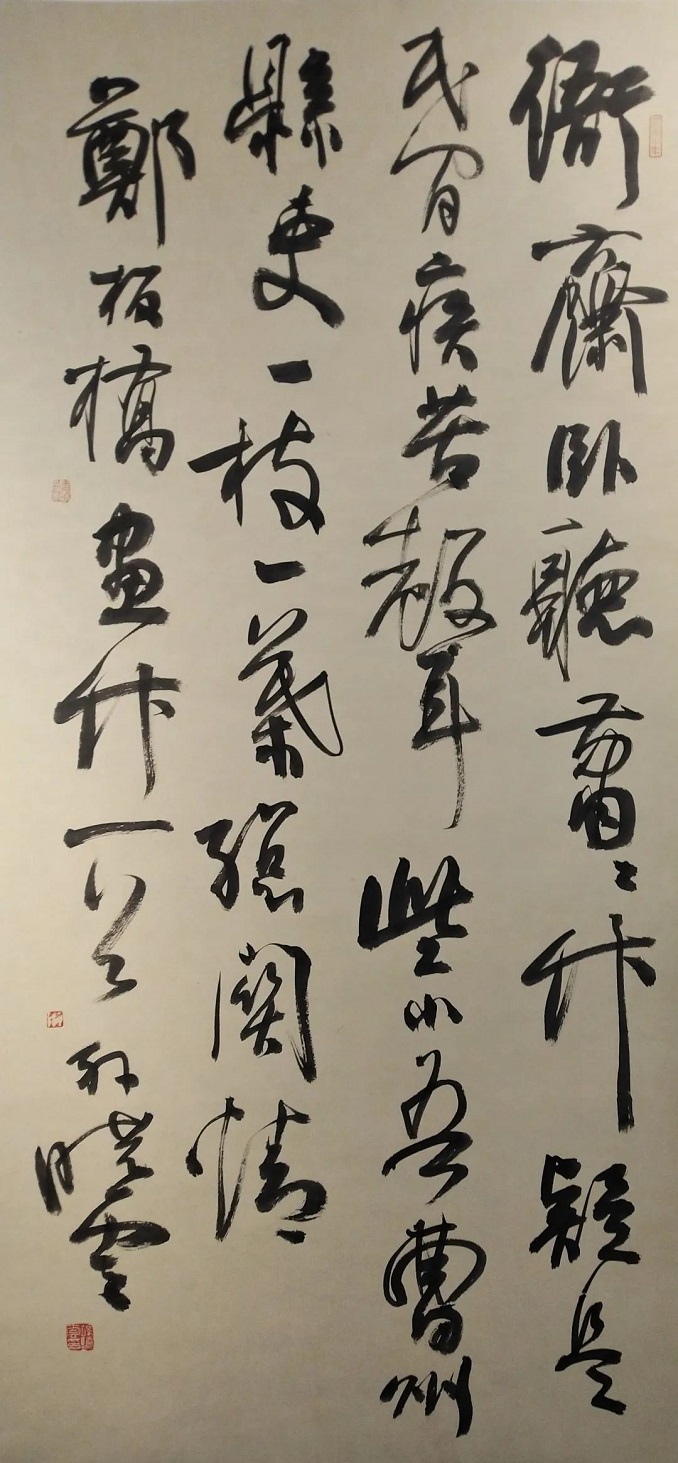 衙齋卧聽蕭〻竹疑是
民間疾苦聲些小吾曹州
縣吏一枝一葉總關情
鄭板橋畫竹一首 孫曉雲